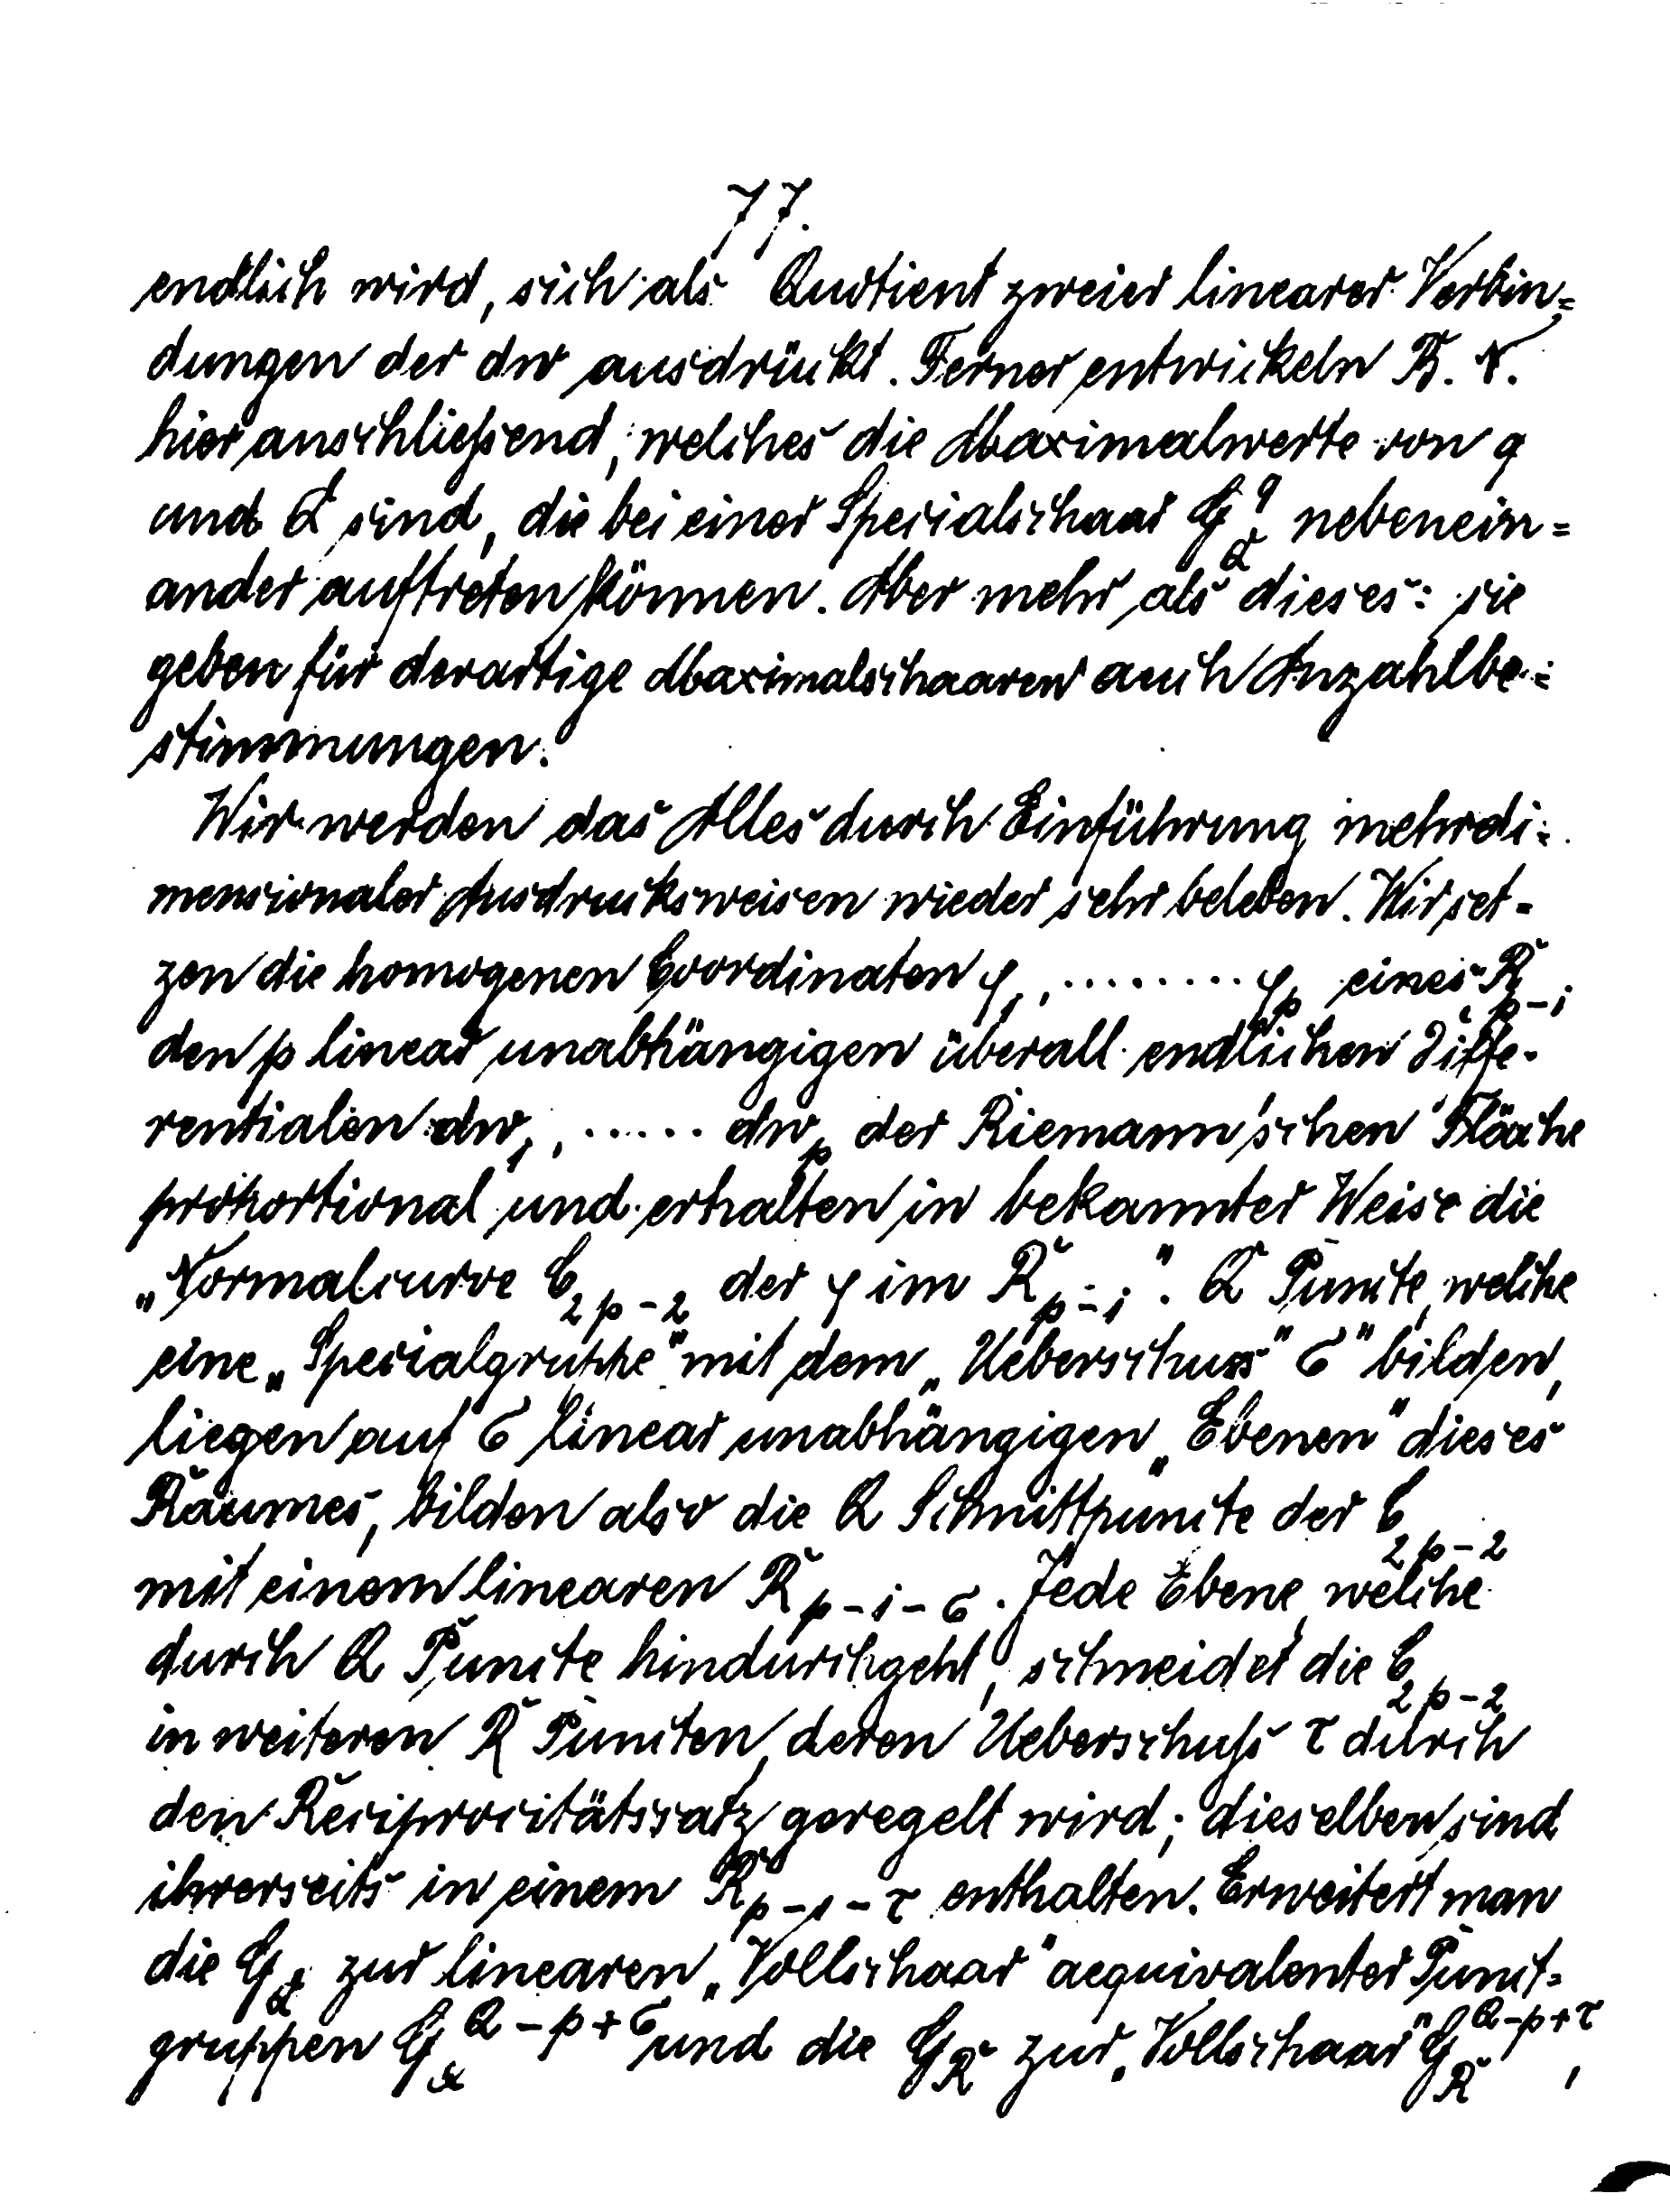 77.
endlich wird, sich als Quotient zweier linearer Verbin=
dungen der dw ausdrückt. Ferner entwickeln B. N.
hier anschließend, welches die Maximalwerte von q
und Q sind, die bei einer Specialschaar G_Q^q nebenein=
ander auftreten können. Aber mehr als dieses: sie
geben für derartige Maximalschaaren auch Anzahlbe=
stimmungen.
Wir werden das Alles durch Einführung mehrdi=
mensionaler Ausdrucksweisen wieder sehr beleben. Wir set=
zen die homogenen Coordinaten φ_1, ........ φ_p eines R_{p-1}
den p linear unabhängigen überall endlichen Diffe-
rentialen dw_1, ...... dw_p der Riemann'schen Fläche
proportional und erhalten in bekannter Weise die
„Normalcurve C_{2p-2} der φ im R_{p-1}". Q Puncte, welche
eine „Specialgruppe" mit dem „Ueberschuss" σ" bilden,
liegen auf σ linear unabhängigen „Ebenen" dieses
Raumes, bilden also die Q Schnittpuncte der C_{2p-2}
mit einem linearen R_{p-1-σ}. Jede Ebene, welche
durch Q Puncte hindurchgeht, schneidet die C_{2p-2}
in weiteren R Puncten, deren Ueberschuß τ durch
den Reciprocitätssatz geregelt wird; dieselben sind
ihrerseits in einem R_{p-1-τ} enthalten. Erweitert man
die G_Q zur linearen „Vollschaar" aequivalenter Punct=
gruppen G_Q^{Q-p+σ} und die G_R zur „Vollschaar" G_R^{Q-p+τ},